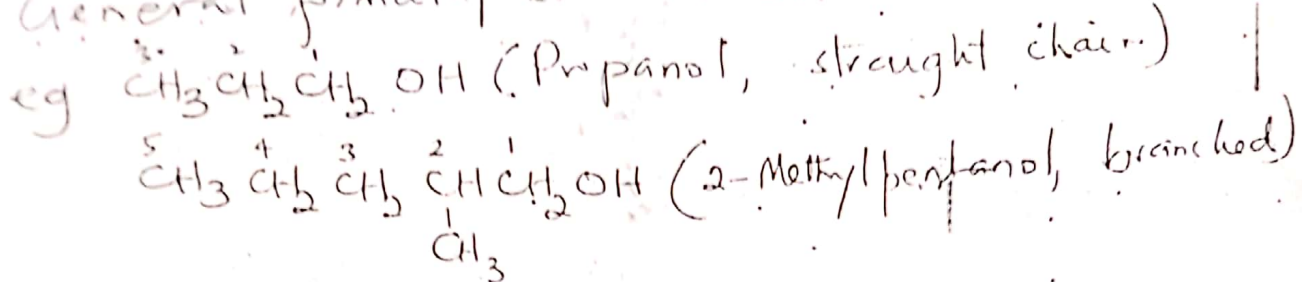 General
3 2 1
eg CH3 CH2 CH2 OH (Propanol, straught chain)
5 4 3 2 1
CH3 CH2 CH2 CH CH2 OH (2-Methylpentanol, branched)
CH3